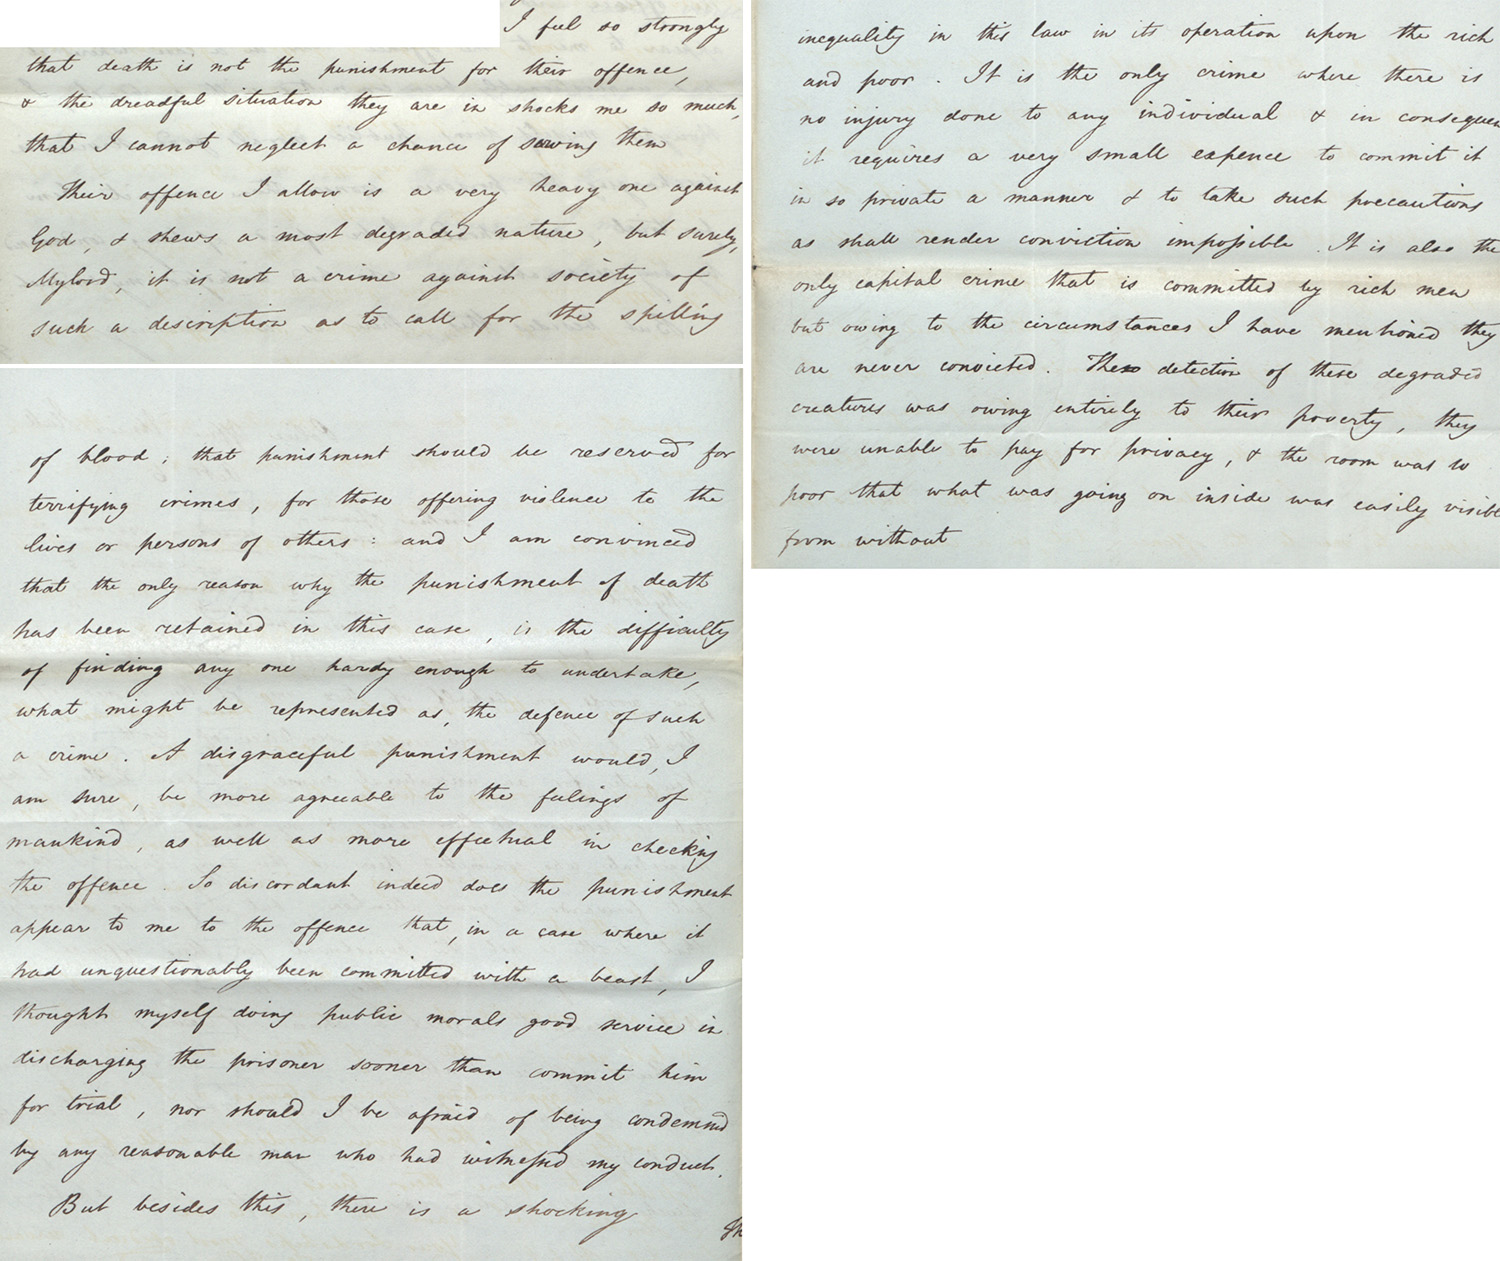 I feel so strongly
that death is not the punishment for their offence,
& the dreadful situation they are in shocks me so much,
that I cannot neglect a chance of saving them
Their offence I allow is a very heavy one against
God, & shews a most degraded nature, but surely,
Mylord, it is not a crime against society of
such a description as to call for the spilling
of blood; that punishment should be reserved for
terrifying crimes, for those offering violence to the
lives or persons of others: and I am convinced
that the only reason why the punishment of death
has been retained in this case, is the difficulty
of finding any one hardy enough to undertake,
what might be represented as, the defence of such
a crime. A disgraceful punishment would, I
am sure, be more agreeable to the feelings of
mankind, as well as more effectual in checking
the offence. So discordant indeed does the punishment
appear to me to the offence that, in a case where it
had unquestionably been committed with a beast, I
thought myself doing public morals good service in
discharging the prisoner sooner than commit him
for trial, nor should I be afraid of being condemned
by any reasonable man who had witnessed my conduct.
But besides this, there is a shocking
inequality in this law in its operation upon the rich
and poor. It is the only crime where there is
no injury done to any individual & in consequen
it requires a very small expence to commit it
in so private a manner & to take such precautions
as shall render conviction impossible. It is also the
only capital crime that is committed by rich men
but owing to the circumstances I have mentioned they
are never convicted. The detection of these degraded
creatures was owing entirely to their poverty, they
were unable to pay for privacy, & the room was so
poor that what was going on inside was easily visible
from without